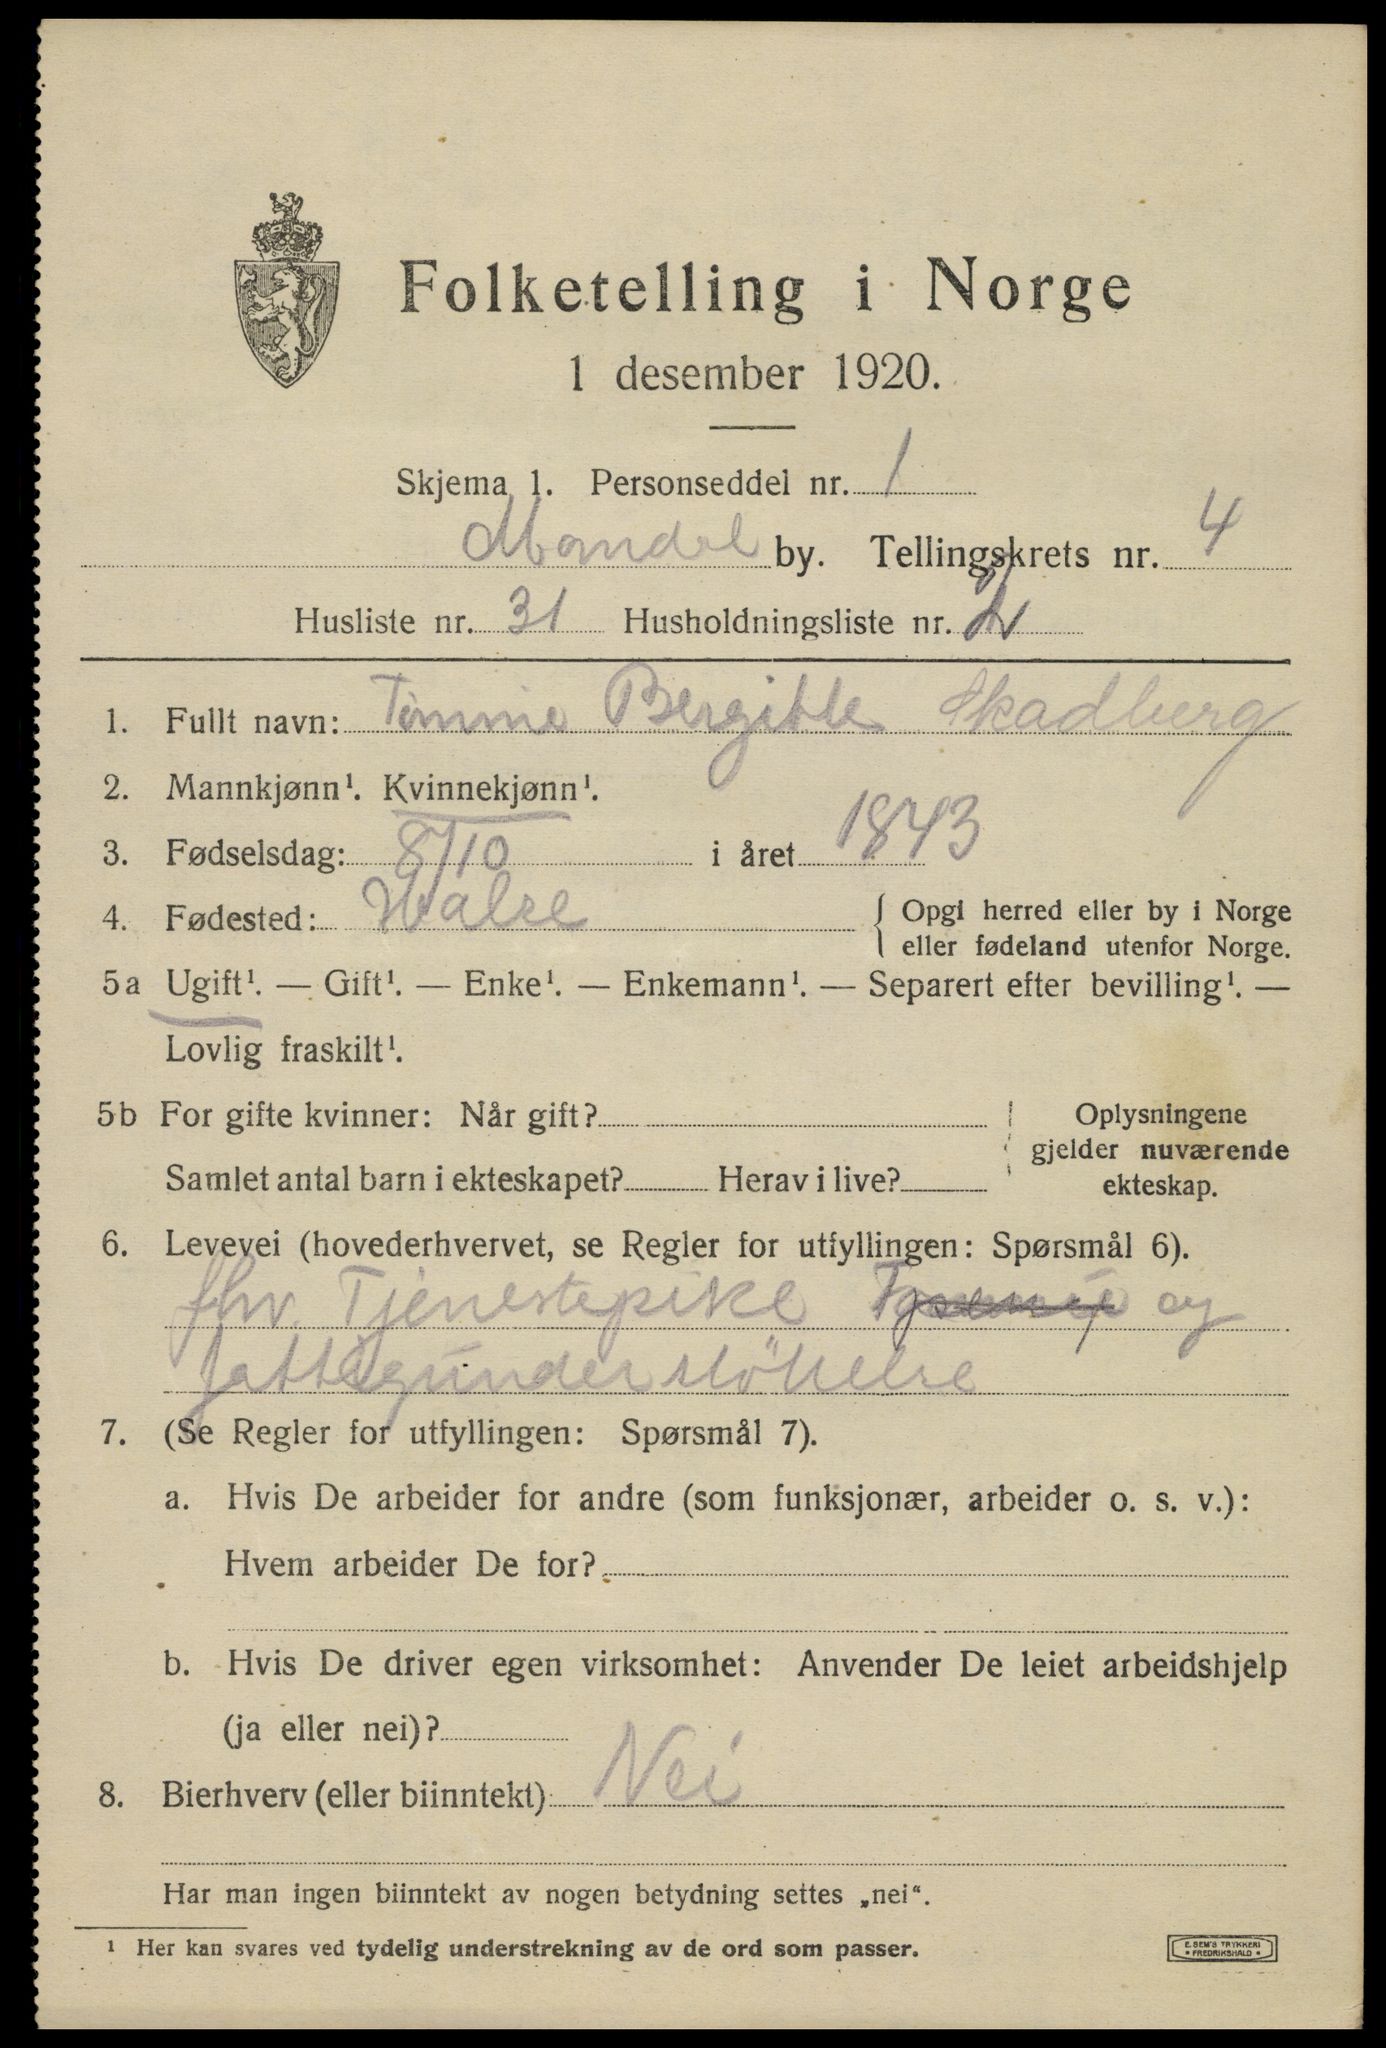 Folketelling i Norge
1 desember 1920.
Skjema 1. Personseddel nr. 1
Mandal by. Tellingskrets nr. 4
Husliste nr. 31 Husholdningsliste nr. 2
1. Fullt navn: Tomine Bergitte Skadberg
2. Mannkjønn¹. Kvinnekjønn¹.
3. Fødselsdag: 8/10 i året 1843
4. Fødested: Halse { Opgi herred eller by i Norge
eller fødeland utenfor Norge.
5a Ugift¹. — Gift¹. — Enke¹. — Enkemann¹. — Separert efter bevilling¹. —
Lovlig fraskilt¹.
5b For gifte kvinner: Når gift? Oplysningene
gjelder nuværende
Samlet antal barn i ekteskapet? Herav i live? ekteskap.
6. Levevei (hovederhvervet, se Regler for utfyllingen: Spørsmål 6).
fhv. Tjenestepike og
fattigunderstöttelse
7. (Se Regler for utfyllingen: Spørsmål 7).
a. Hvis De arbeider for andre (som funksjonær, arbeider o. s. v.):
Hvem arbeider De for?
b. Hvis De driver egen virksomhet: Anvender De leiet arbeidshjelp
(ja eller nei)?
8. Bierhverv (eller biinntekt) Nei
Har man ingen biinntekt av nogen betydning settes „nei“.
¹ Her kan svares ved tydelig understrekning av de ord som passer.
E. SEM'S TRYKKERI
• FREDRIKSHALD •